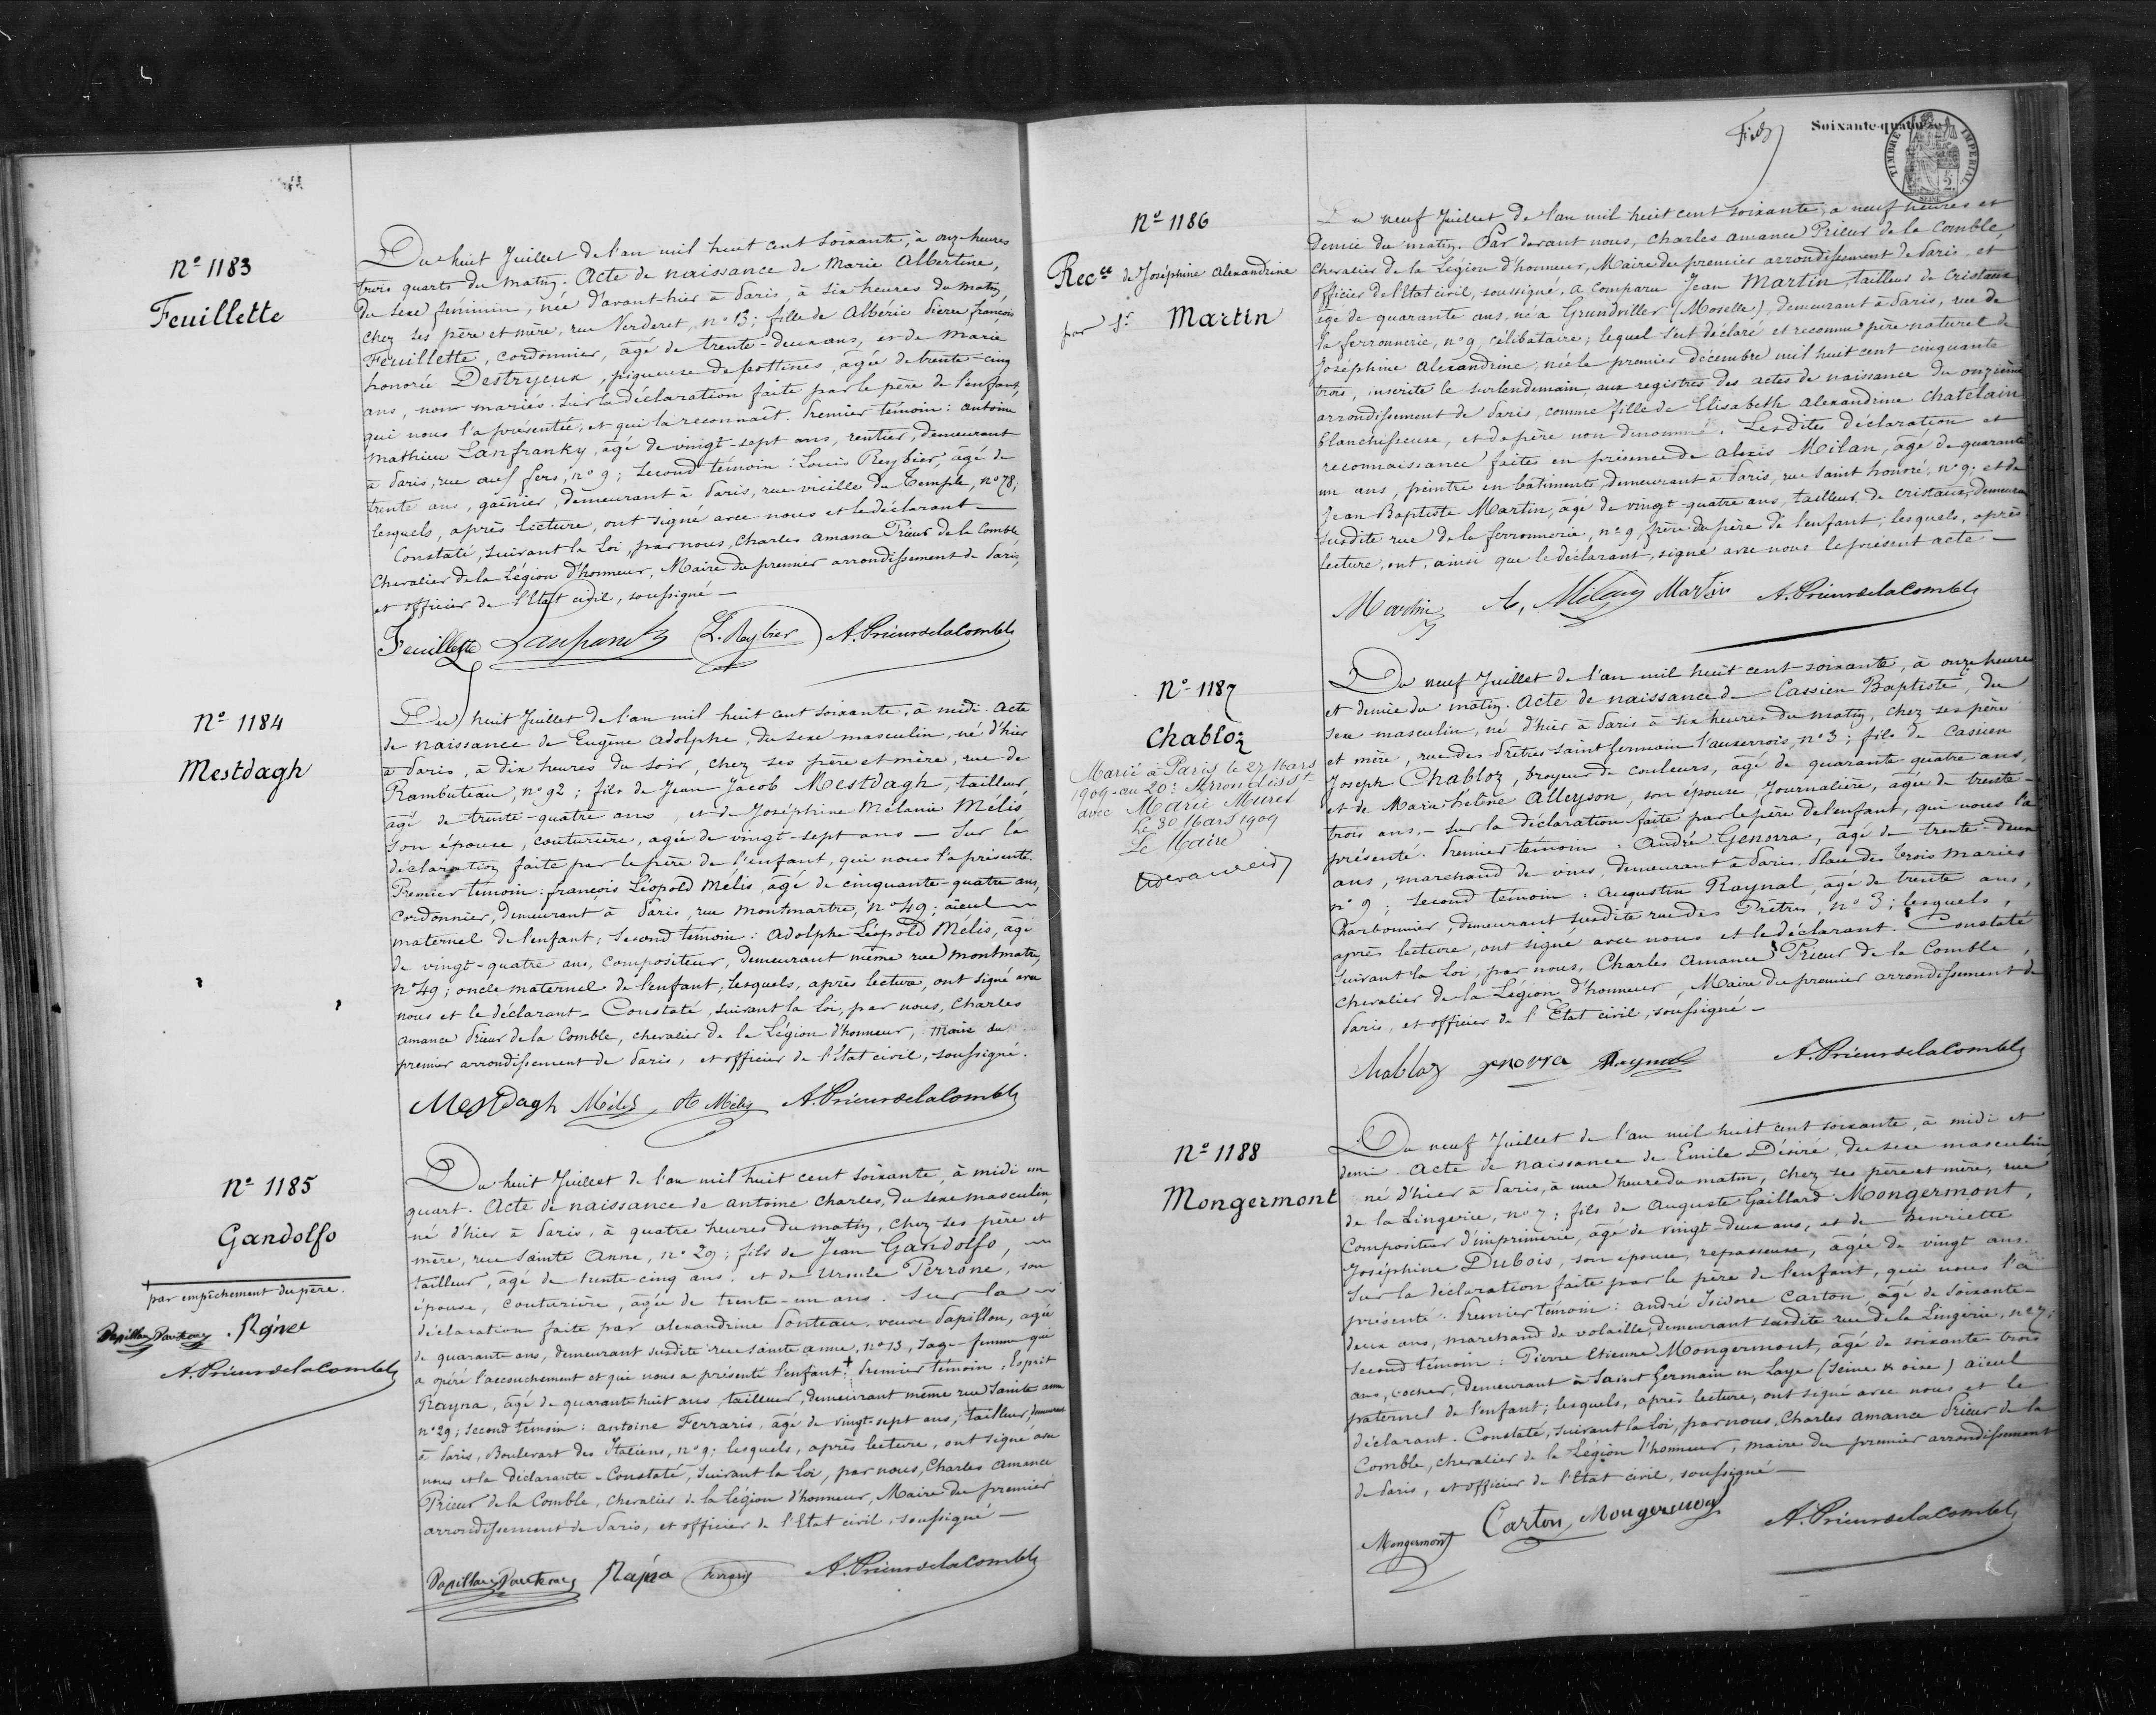 Nº 1183
Feuillette
Du huit Juillet de l'an mil huit cent soixante, à onze heures
trois quarts du matin. Acte de naissance de Marie Albertine,
du sexe féminin, née d'avant-hier à Paris, à six heures du matin,
chez ses père et mère, rue Verderet, nº 13; fille de Albéric Pierre françois
Feuillette, cordonnier, âgé de trente-deux ans, et de Marie
honorée Destryeux, piqueuse de bottines, âgée de trente-cinq
ans, non mariés. Sur la déclaration faite par le père de l'enfant,
qui nous l'a présentée, et qui la reconnaît. Premier témoin: antoine
mathieu Lanfranky, âgé de vingt-sept ans, rentier, demeurant
à Paris, rue aux fers, nº 9; Second témoin: Louis Reybier, âgé de
trente ans, gaînier, demeurant à Paris, rue vieille du Temple, nº 78;
lesquels, après lecture, ont signé avec nous et le déclarant —
Constaté, suivant la Loi, par nous, Charles amance Prieur de la Comble,
Chevalier de la Légion d'honneur, Maire du premier arrondissement de Paris,
et officier de l'Etat civil, soussigné —
Feuillette L. Reybier A. Prieur de la Comble
Nº 1184
Mestdagh
Du huit Juillet de l'an mil huit cent soixante, à midi. Acte
de naissance de Eugène adolphe, du sexe masculin, né d'hier
à Paris, à dix heures du soir, chez ses père et mère, rue de
Rambuteau, nº 92; fils de Jean Jacob Mestdagh, tailleur,
âgé de trente-quatre ans, et de Joséphine Mélanie Mélis
son épouse, couturière, âgée de vingt-sept ans — Sur la
déclaration faite par le père de l'enfant, qui nous l'a présenté.
Premier témoin: françois Léopold Mélis, âgé de cinquante-quatre ans,
Cordonnier, demeurant à Paris, rue montmartre, nº 49; aïeul
maternel de l'enfant; Second témoin: Adolphe Léopold Mélis, âgé
de vingt-quatre ans, compositeur, demeurant même rue montmartre,
nº 49; oncle maternel de l'enfant; lesquels, après lecture, ont signé avec
nous et le déclarant — Constaté, suivant la Loi, par nous, Charles
amance Prieur de la Comble, chevalier de la Légion d'honneur, Maire du
premier arrondissement de Paris, et officier de l'Etat civil, soussigné.
Mestdagh Mélis A Mélis A. Prieur de la Comble
Nº 1185
Gandolfo
+ par empêchement du père.
Papillon Ponteau Rayna
A. Prieur de la Comble
Du huit Juillet de l'an mil huit cent soixante, à midi un
quart. Acte de naissance de antoine Charles, du sexe masculin,
né d'hier à Paris, à quatre heures du matin, chez ses père et
mère, rue Sainte Anne, nº 29; fils de Jean Gandolfo,
tailleur, âgé de trente-cinq ans, et de Ursule Perrone, son
épouse, couturière, âgée de trente-un ans. Sur la
déclaration faite par alexandrine Ponteau, veuve Papillon, âgée
de quarante ans, demeurant susdite rue sainte anne, nº 13, sage-femme qui
a opéré l'accouchement et qui nous a présenté l'enfant +. Premier témoin: Esprit
Rayna, âgé de quarante huit ans, tailleur, demeurant même rue Sainte anne
nº 29; second témoin: antoine Ferraris, âgé de vingt-sept ans, tailleur, demeurant
à Paris, Boulevart des Italiens, nº 9; lesquels, après lecture, ont signé avec
nous et la déclarante — Constaté, suivant la Loi, par nous, Charles amance
Prieur de la Comble, chevalier de la légion d'honneur, Maire du premier
arrondissement de Paris, et officier de l'Etat civil, soussigné —
Papillon Ponteau Rayna Ferraris A. Prieur de la Comble
Soixante-quatorze
TIMBRE IMPERIAL
SEINE
Nº 1186
Recce de Joséphine Alexandrine
par Sr Martin
Du neuf Juillet de l'an mil huit cent soixante, à neuf heures et
demie du matin. Par devant nous, Charles amance Prieur de la Comble,
Chevalier de la Légion d'honneur, Maire du premier arrondissement de Paris, et
officier de l'Etat civil, soussigné, a comparu Jean Martin, tailleur de cristaux
âgé de quarante ans, né à Grundviller (Moselle), demeurant à Paris, rue de
la ferronnerie, nº 9, célibataire; lequel s'est déclaré et reconnu père naturel de
Joséphine Alexandrine, née le premier décembre mil huit cent cinquante
trois, inscrite le surlendemain, aux registres des actes de naissance du onzième
arrondissement de Paris, comme fille de Elisabeth Alexandrine Chatelain
blanchisseuse, et de père non dénommé. Lesdites déclaration et
reconnaissance faites en présence de alexis Milan, âgé de quarante
un ans, peintre en bâtiments, demeurant à Paris, rue Saint honoré, nº 9; et de
Jean Baptiste Martin, âgé de vingt-quatre ans, tailleur de cristaux, demeurant
susdite rue de la ferronnerie, nº 9, frère du père de l'enfant; lesquels, après
lecture, ont, ainsi que le déclarant, signé avec nous le présent acte —
Martin A, Milan Martin A. Prieur de la Comble
Nº 1187
Chabloz
Marié à Paris le 27 Mars
1909 au 20e Arrondisst
avec Marie Muret
Le 30 Mars 1909
Le Maire
Du neuf Juillet de l'an mil huit cent soixante, à onze heures
et demie du matin. Acte de naissance de Cassien Baptiste, du
sexe masculin, né d'hier à Paris à six heures du matin, chez ses père
et mère, rue des Prêtres Saint Germain l'auxerrois, nº 3; fils de Cassien
Joseph Chabloz, broyeur de couleurs, âgé de quarante-quatre ans,
et de Marie hélène Alleyson, son épouse, Journalière, âgée de trente-
trois ans, — Sur la déclaration faite par le père de l'enfant, qui nous l'a
présenté. Premier témoin: André Genovra, âgé de trente-deux
ans, marchand de vins, demeurant à Paris, Place des trois maries
nº 9; Second témoin: Augustin Raynal, âgé de trente ans,
Charbonnier, demeurant susdite rue des Prêtres, nº 3; lesquels,
après lecture, ont signé avec nous et le déclarant. Constaté
suivant la Loi, par nous, Charles amance Prieur de la Comble,
Chevalier de la Légion d'honneur, Maire du premier arrondissement de
Paris, et officier de l'Etat civil, soussigné —
Chabloz genovra Raynal A. Prieur de la Comble
Nº 1188
Mongermont
Du neuf Juillet de l'an mil huit cent soixante, à midi et
demi. Acte de naissance de Emile Désiré, du sexe masculin,
né d'hier à Paris, à une heure du matin, chez ses père et mère, rue
de la Lingerie, nº 7; fils de Auguste Gaillard Mongermont,
Compositeur d'imprimerie, âgé de vingt-deux ans, et de henriette
Joséphine Dubois, son épouse, repasseuse, âgée de vingt ans.
Sur la déclaration faite par le père de l'enfant, qui nous l'a
présenté. Premier témoin: André Isidore Carton âgé de soixante-
deux ans, marchand de volaille, demeurant susdite rue de la Lingerie, nº 7;
second témoin: Pierre Etienne Mongermont, âgé de soixante-trois
ans, cocher, demeurant à Saint Germain en Laye (Seine & oise) aïeul
paternel de l'enfant; lesquels, après lecture, ont signé avec nous et le
déclarant. Constaté, suivant la Loi, par nous, Charles amance Prieur de la
Comble, chevalier de la Légion d'honneur, maire du premier arrondissement
de Paris, et officier de l'Etat civil, soussigné —
Mongermont Carton Mongermont A. Prieur de la Comble